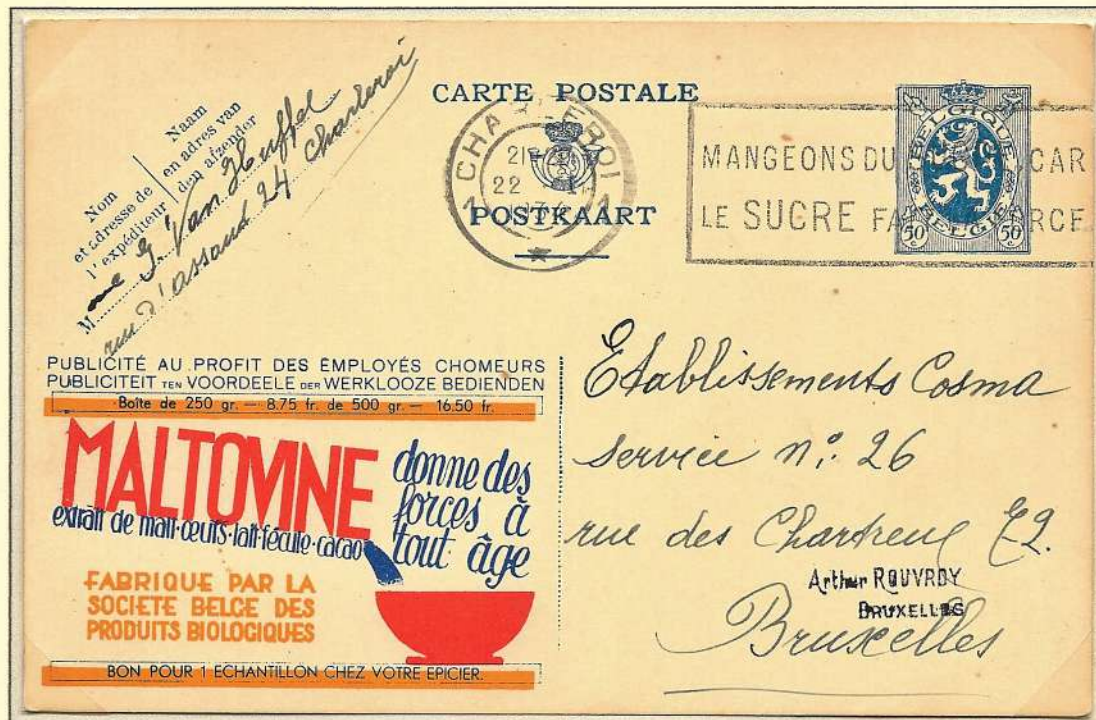 CARTE POSTALE
POSTKAART
Nom et adresse de l'expéditeur
Naam en adres van den afzender
Mme G. Van Heuffel
rue d'assaud 24 Charleroi
1 CHA EROI 1
22
MANGEONS DU CAR
LE SUCRE FA RCE
BELGIQUE
BELGIË
50 c 50 c
PUBLICITÉ AU PROFIT DES EMPLOYÉS CHOMEURS
PUBLICITEIT TEN VOORDEELE DER WERKLOOZE BEDIENDEN
Boîte de 250 gr. — 8.75 fr. de 500 gr. — 16.50 fr.
MALTOVINE
extrait de malt·œufs·lait·fécule·cacao
donne des
forces à
tout âge
FABRIQUE PAR LA
SOCIETE BELGE DES
PRODUITS BIOLOGIQUES
BON POUR 1 ECHANTILLON CHEZ VOTRE EPICIER.
Etablissements Cosma
service n° 26
rue des Chartreux
Arthur ROUVROY
BRUXELLES
Bruxelles